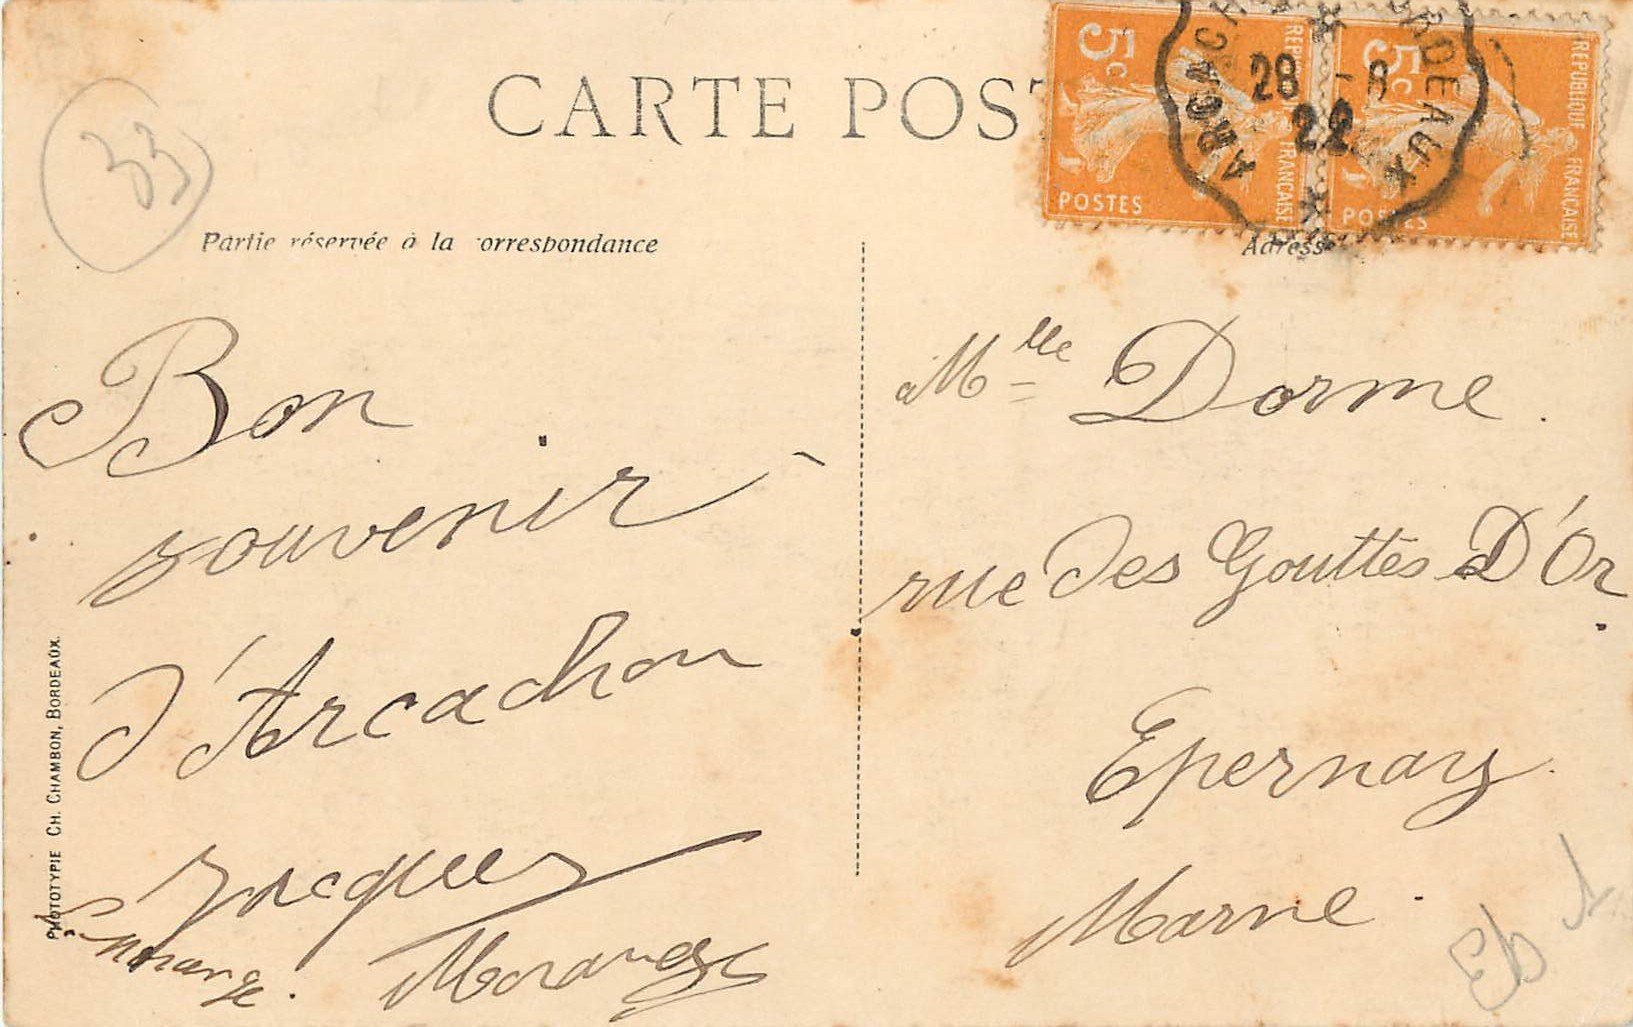 CARTE POST
33
Partie réservée à la orrespondance
Adresse
5c
POSTES
REPUBLIQUE FRANÇAISE
5c
POSTES
REPUBLIQUE FRANÇAISE
ARCACH RDEAUX
28 -8
22
Bon
souvenir
d'Arcachon
Jacques
à Mlle Dorme.
rue des Gouttes D'Or.
Epernay.
Marne.
PHOTOTYPIE CH. CHAMBON, BORDEAUX.